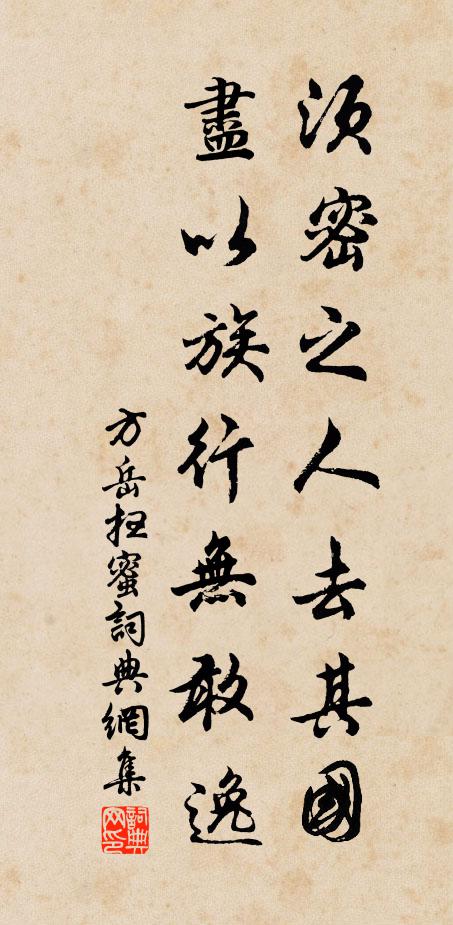 須密之人去其國
盡以族行無敢逸
方岳抂蜜詞典網集
詞典网印